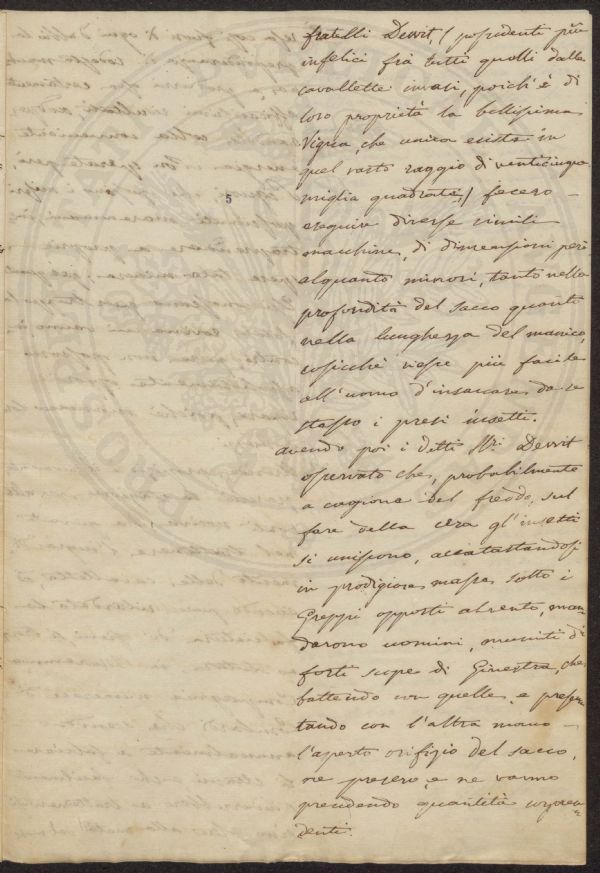 fratelli Dewit, (possidenti più
infelici frà tutti quelli dalle
cavallette invasi, poichè è di
loro proprietà la bellissima
Vigna, che unica esiste in
quel vasto raggio di venticinque
miglia quadrate,) fecero
5
eseguire diverse simili
macchine, di dimensioni però
alquanto minori, tanto nella
profondità del sacco quanto
nella lunghezza del manico,
cosicchè riesce più facile
all'uomo d'insaccare da se
stesso i presi insetti.
avendo poi i detti SSri Dewit
osservato che, probabilmente
a cagione del freddo, sul
fare della sera gl'insetti
si uniscono, accatastandosi
in prodigiose masse sotto i
Greppi opposti al vento, man
darono uomini, muniti di
forti scope di Ginestra, che
battendo con quelle, e presen
tando con l'altra mano
l'aperto orifizio del sacco,
ne presero, e ne vanno
prendendo quantità sorpren
denti.